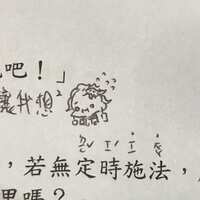 吧！」
讓我想²
，若無定時施法，
嗎？